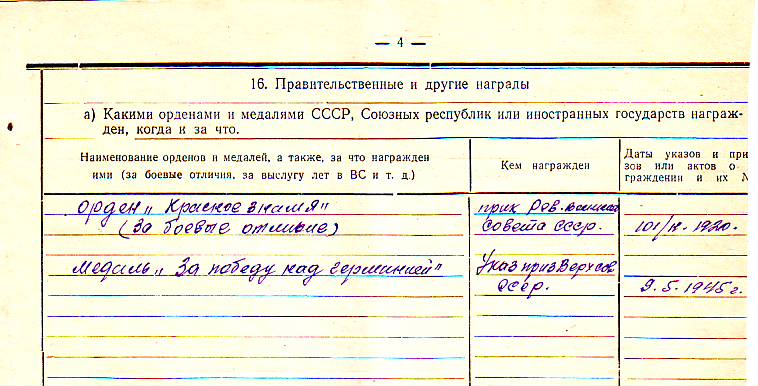 — 4 —
16. Правительственные и другие награды
а) Какими орденами и медалями СССР, Союзных республик или иностранных государств награж-
ден, когда и за что.
Наименование орденов и медалей, а также, за что награжден
ими (за боевые отличия, за выслугу лет в ВС и т. д.)
Кем награжден
Даты указов и при
зов или актов о
граждении и их №
орден „Красное знамя"
(За боевые отличие)
прик Рев.
Совета СССР.
1920.
Медаль „За победу над германией"
Указ през Верх сов
СССР.
9.5.1945 г.